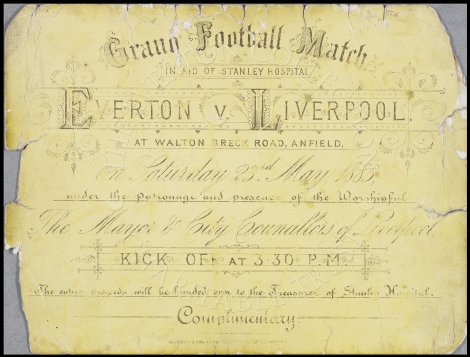 Grand Football Match
IN AID OF STANLEY HOSPITAL
EVERTON V. LIVERPOOL.
AT WALTON BRECK ROAD, ANFIELD,
on Saturday 23rd May 1885
under the patronage and presence of the Worshipful
The Mayor & City Councillors of Liverpool
KICK OFF AT 3.30 P.M.
The entire proceeds will be handed over to the Treasurer of Stanley Hospital.
Complimentary.